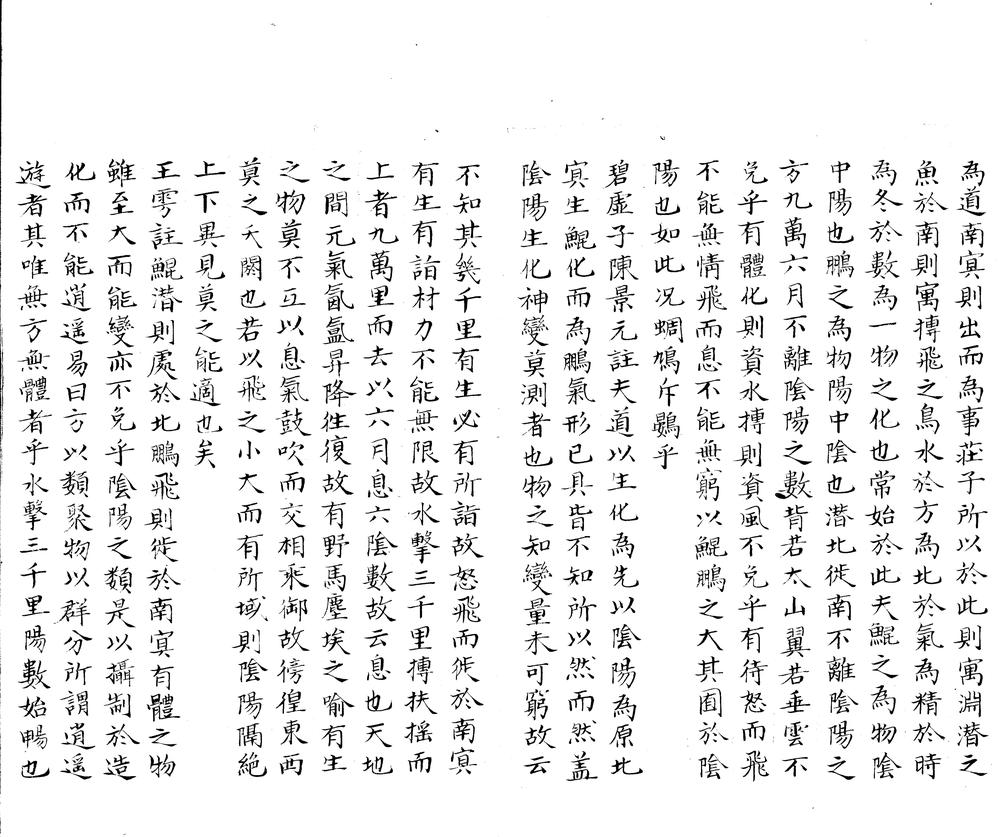 為道南㝠則出而為事莊子所以於此則寓淵潜之
魚於南則寓摶飛之鳥水於方為北於氣為精於時
為冬於數為一物之化也常始於此夫鯤之為物陰
中陽也鵬之為物陽中陰也潜北徙南不離陰陽之
方九萬六月不離陰陽之數背若太山翼若垂雲不
免乎有體化則資水摶則資風不免乎有待怒而飛
不能無情飛而息不能無窮以鯤鵬之大其囿於陰
陽也如此况蜩鳩斥鷃乎
碧虛子陳景元註夫道以生化為先以陰陽為原北
㝠生鯤化而為鵬氣形已具皆不知所以然而然盖
陰陽生化神變莫測者也物之知變量未可窮故云
不知其幾千里有生必有所詣故怒飛而徙於南㝠
有生有詣材力不能無限故水擊三千里摶扶搖而
上者九萬里而去以六月息六陰數故云息也天地
之間元氣氤氳昇降徃復故有野馬塵埃之喻有生
之物莫不互以息氣鼓吹而交相乘御故徬徨東西
莫之夭閼也若以飛之小大而有所域則陰陽隔絶
上下異見莫之能適也矣
王雱註鯤潜則處於北鵬飛則徙於南㝠有體之物
雖至大而能變亦不免乎陰陽之類是以攝制於造
化而不能逍遥易曰方以類聚物以群分所謂逍遥
遊者其唯無方無體者乎水擊三千里陽數始暢也